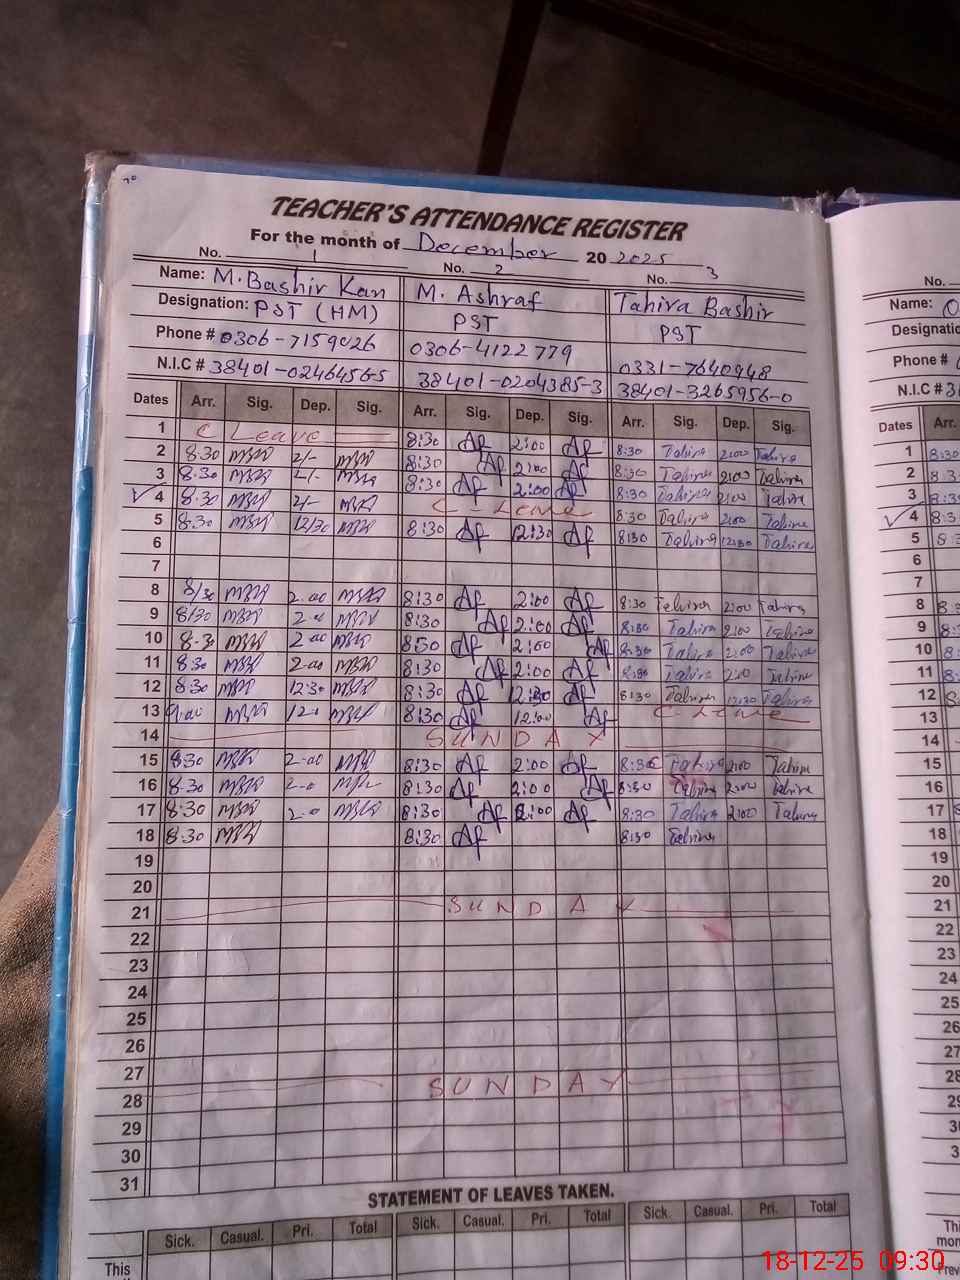 TEACHER'S ATTENDANCE REGISTER
For the month of December 20 2025
No. 1 No. 2 No. 3
Name: M. Bashir Kan M. Ashraf Tahira Bashir
Designation: PST (HM) PST PST
Phone # 0306-7159026 0306-4122779 0331-7640948
N.I.C # 38401-0246456-5 38401-0204385-3 38401-3265956-0
Dates Arr. Sig. Dep. Sig. Arr. Sig. Dep. Sig. Arr. Sig. Dep. Sig.
1 C Leave 8:30 Af 2:00 Af 8:30 Tahira 2:00 Tahira
2 8:30 2/- 8:30 Af 2:00 Af 8:30 Tahira 2:00 Tahira
3 8:30 2/- 8:30 Af 2:00 Af 8:30 Tahira 2:00 Tahira
4 8:30 2/- C-Leave 8:30 Tahira 2:00 Tahira
5 8:30 12/30 8:30 Af 12:30 Af 8:30 Tahira 12:30 Tahira
6
7
8 8/30 2-00 8:30 Af 2:00 Af 8:30 Tahira 2:00 Tahira
9 8/30 2-0 8:30 Af 2:00 Af 8:30 Tahira 2:00 Tahira
10 8-30 2-00 8:30 Af 2:00 Af 8:30 Tahira 2:00 Tahira
11 8:30 2-00 8:30 Af 2:00 Af 8:30 Tahira 2:00 Tahira
12 8:30 12:30 8:30 Af 12:30 Af 8:30 Tahira 12:30 Tahira
13 9:00 12- 8:30 Af 12:00 Af C-Leave
14 SUNDAY
15 8:30 2-00 8:30 Af 2:00 Af 8:30 Tahira 2:00 Tahira
16 8:30 2-0 8:30 Af 2:00 Af 8:30 Tahira 2:00 Tahira
17 8:30 2-0 8:30 Af 2:00 Af 8:30 Tahira 2:00 Tahira
18 8:30 8:30 Af 8:30 Tahira
19
20
21 SUNDAY
22
23
24
25
26
27
28 SUNDAY
29
30
31
STATEMENT OF LEAVES TAKEN.
Sick. Casual. Pri. Total Sick. Casual. Pri. Total Sick. Casual. Pri. Total
This
No.
Name:
Designatio
Phone #
N.I.C #
Dates Arr.
1 8:30
2 8:3
3
4 8:3
5 8:
6
7
8 8:3
9 8:
10 8:
11 8:
12
13
14
15
16
17
18
19
20
21
22
23
24
25
26
27
28
29
30
3
This
mon
Prev
18-12-25 09:30